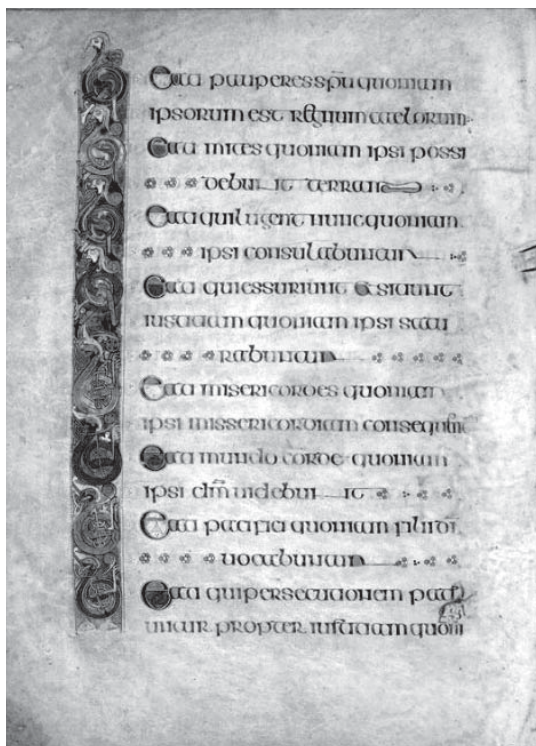 Beati pauperes spu quoniam
ipsorum est regnum caelorum
Beati mites quoniam ipsi possi
debunt terram
Beati qui lugent nunc quoniam
ipsi consulabuntur
Beati qui essuriunt et sitiunt
iustitiam quoniam ipsi satu
rabuntur
Beati misericordes quoniam
ipsi missericordiam consequntr
Beati mundo corde quoniam
ipsi dm videbunt
Beati pacifici quoniam filii di
vocabuntur
Beati qui persecutionem pati
untur propter iustitiam quoni